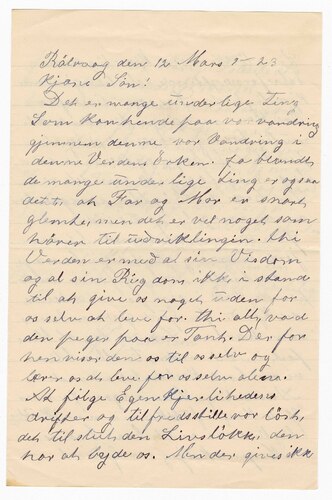 Kalvaag den 12 Mars 1923
Kjære Søn!
Det er mange underlige Ting
som kan hende paa vor vandring
gjennem denne vor Vandring i
denne Verdens Ørken. fo blandt
de mange underlige ting er ogsaa
dette at Far og Mor er snart
glemte, men det er vel noget som
hører til udviklingen. thi
Verden er med al sin Visdom
og al sin Rigdom ikke i stand
til at give os noget uden for
os selv at leve for. thi alt, vad
den peger paa er Tant. Der for
hen viser den os til os selv og
lærer os at leve for os selv alene.
At følge Egenkjerlihedens
drifter og tilfredsstille vor lyst,
det til slut den Livslykke, den
har at byde os. Men der gives ikk